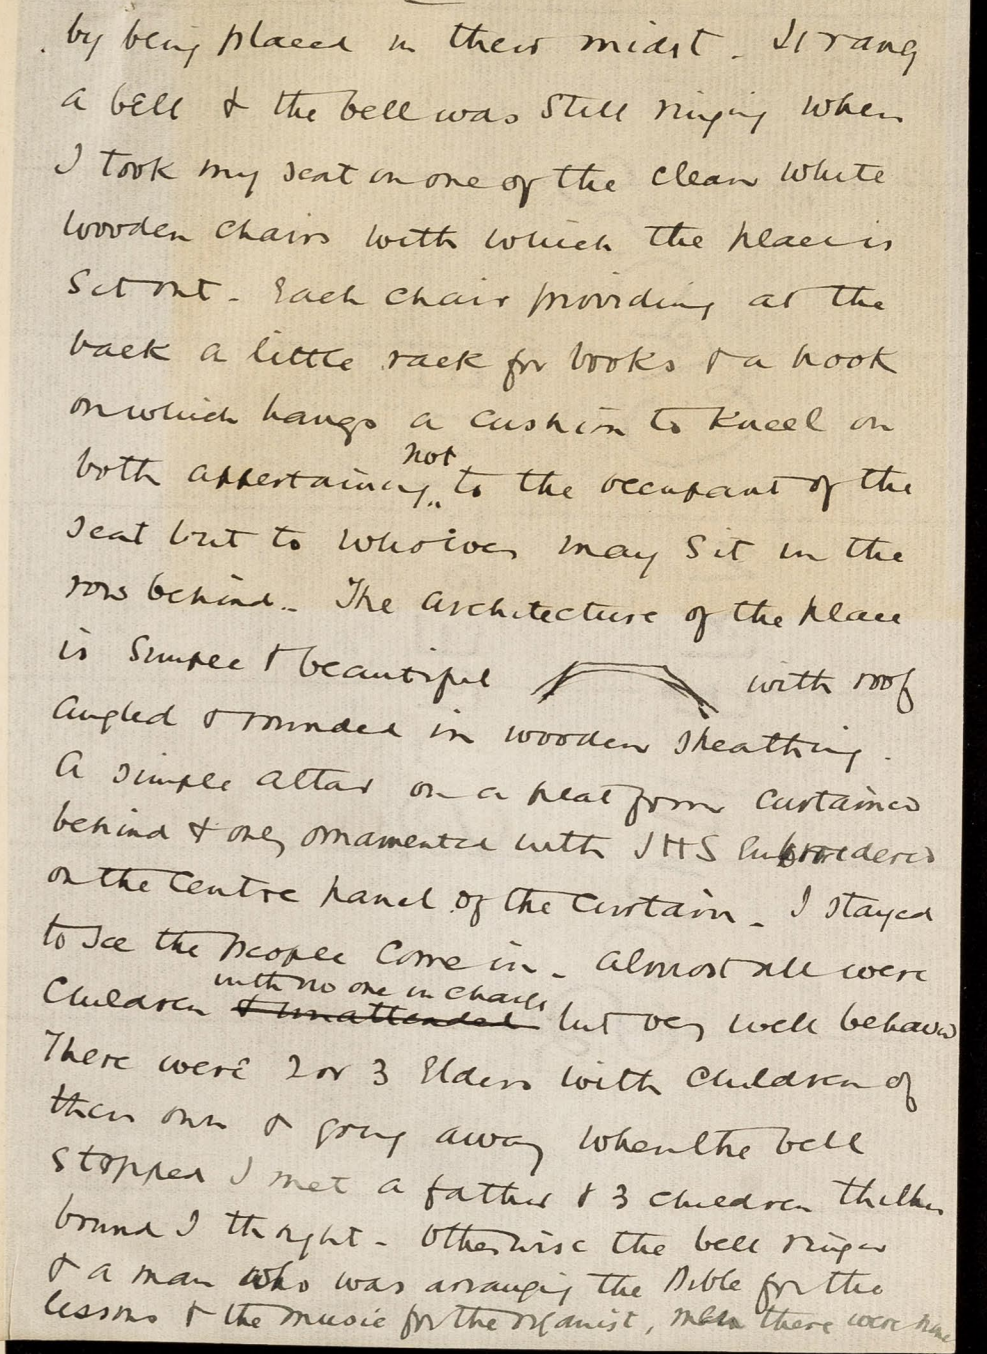 by being placed in their midst. It rang
a bell & the bell was still ringing when
I took my seat on one of the clean white
wooden chairs with which the place is
set out - Each chair providing at the
back a little rack for books & a hook
on which hangs a cushion to kneel on
not
both appertaining to the occupant of the
seat but to whoever may sit in the
row behind.. The architecture of the place
is simple & beautiful with roof
angled & rounded in wooden sheathing.
A simple altar on a platform curtained
behind & only ornamented with IHS embroidered
on the centre panel of the curtain - I stayed
to see the people come in - almost all were
with no one in charge
children & unattended but very well behaved
There were 2 or 3 Elders with children of
their own & going away when the bell
stopped I met a father & 3 children thither
bound I thought - Otherwise the bell ringer
& a man who was arranging the Bible for the
lessons & the music for the organist, men there were none